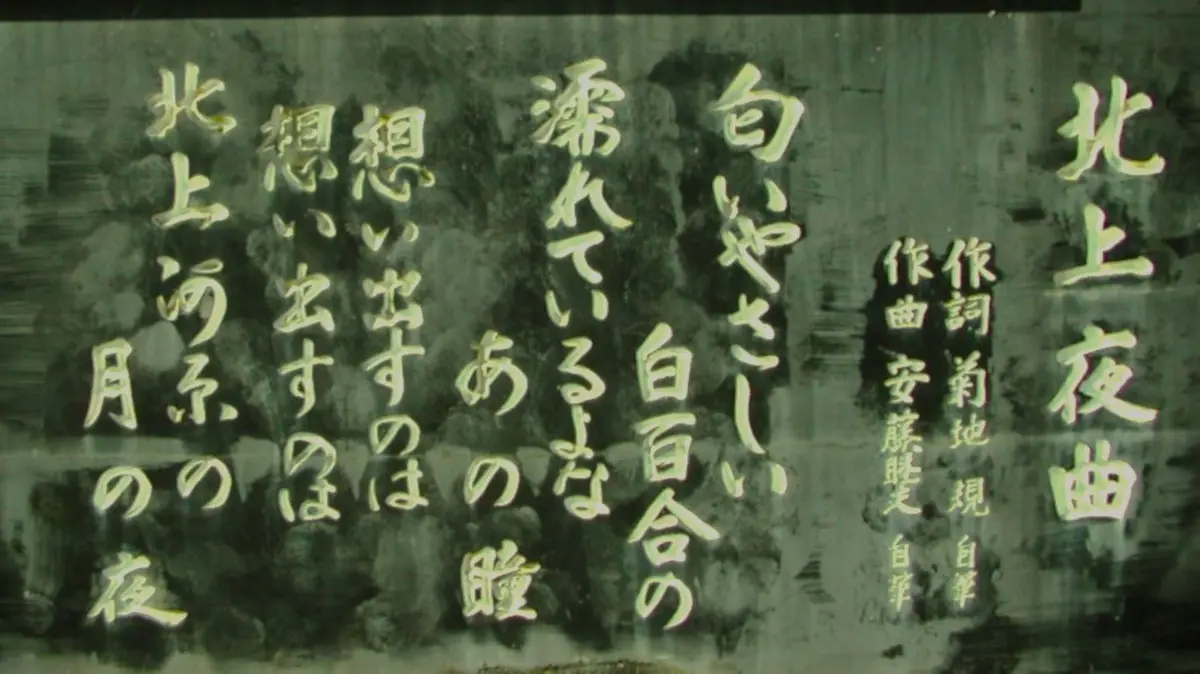 北上夜曲
作詞 菊地 規 自筆
作曲 安藤睦夫 自筆
匂いやさしい
白百合の
濡れているよな
あの瞳
想い出すのは
想い出すのは
北上河原の
月の夜